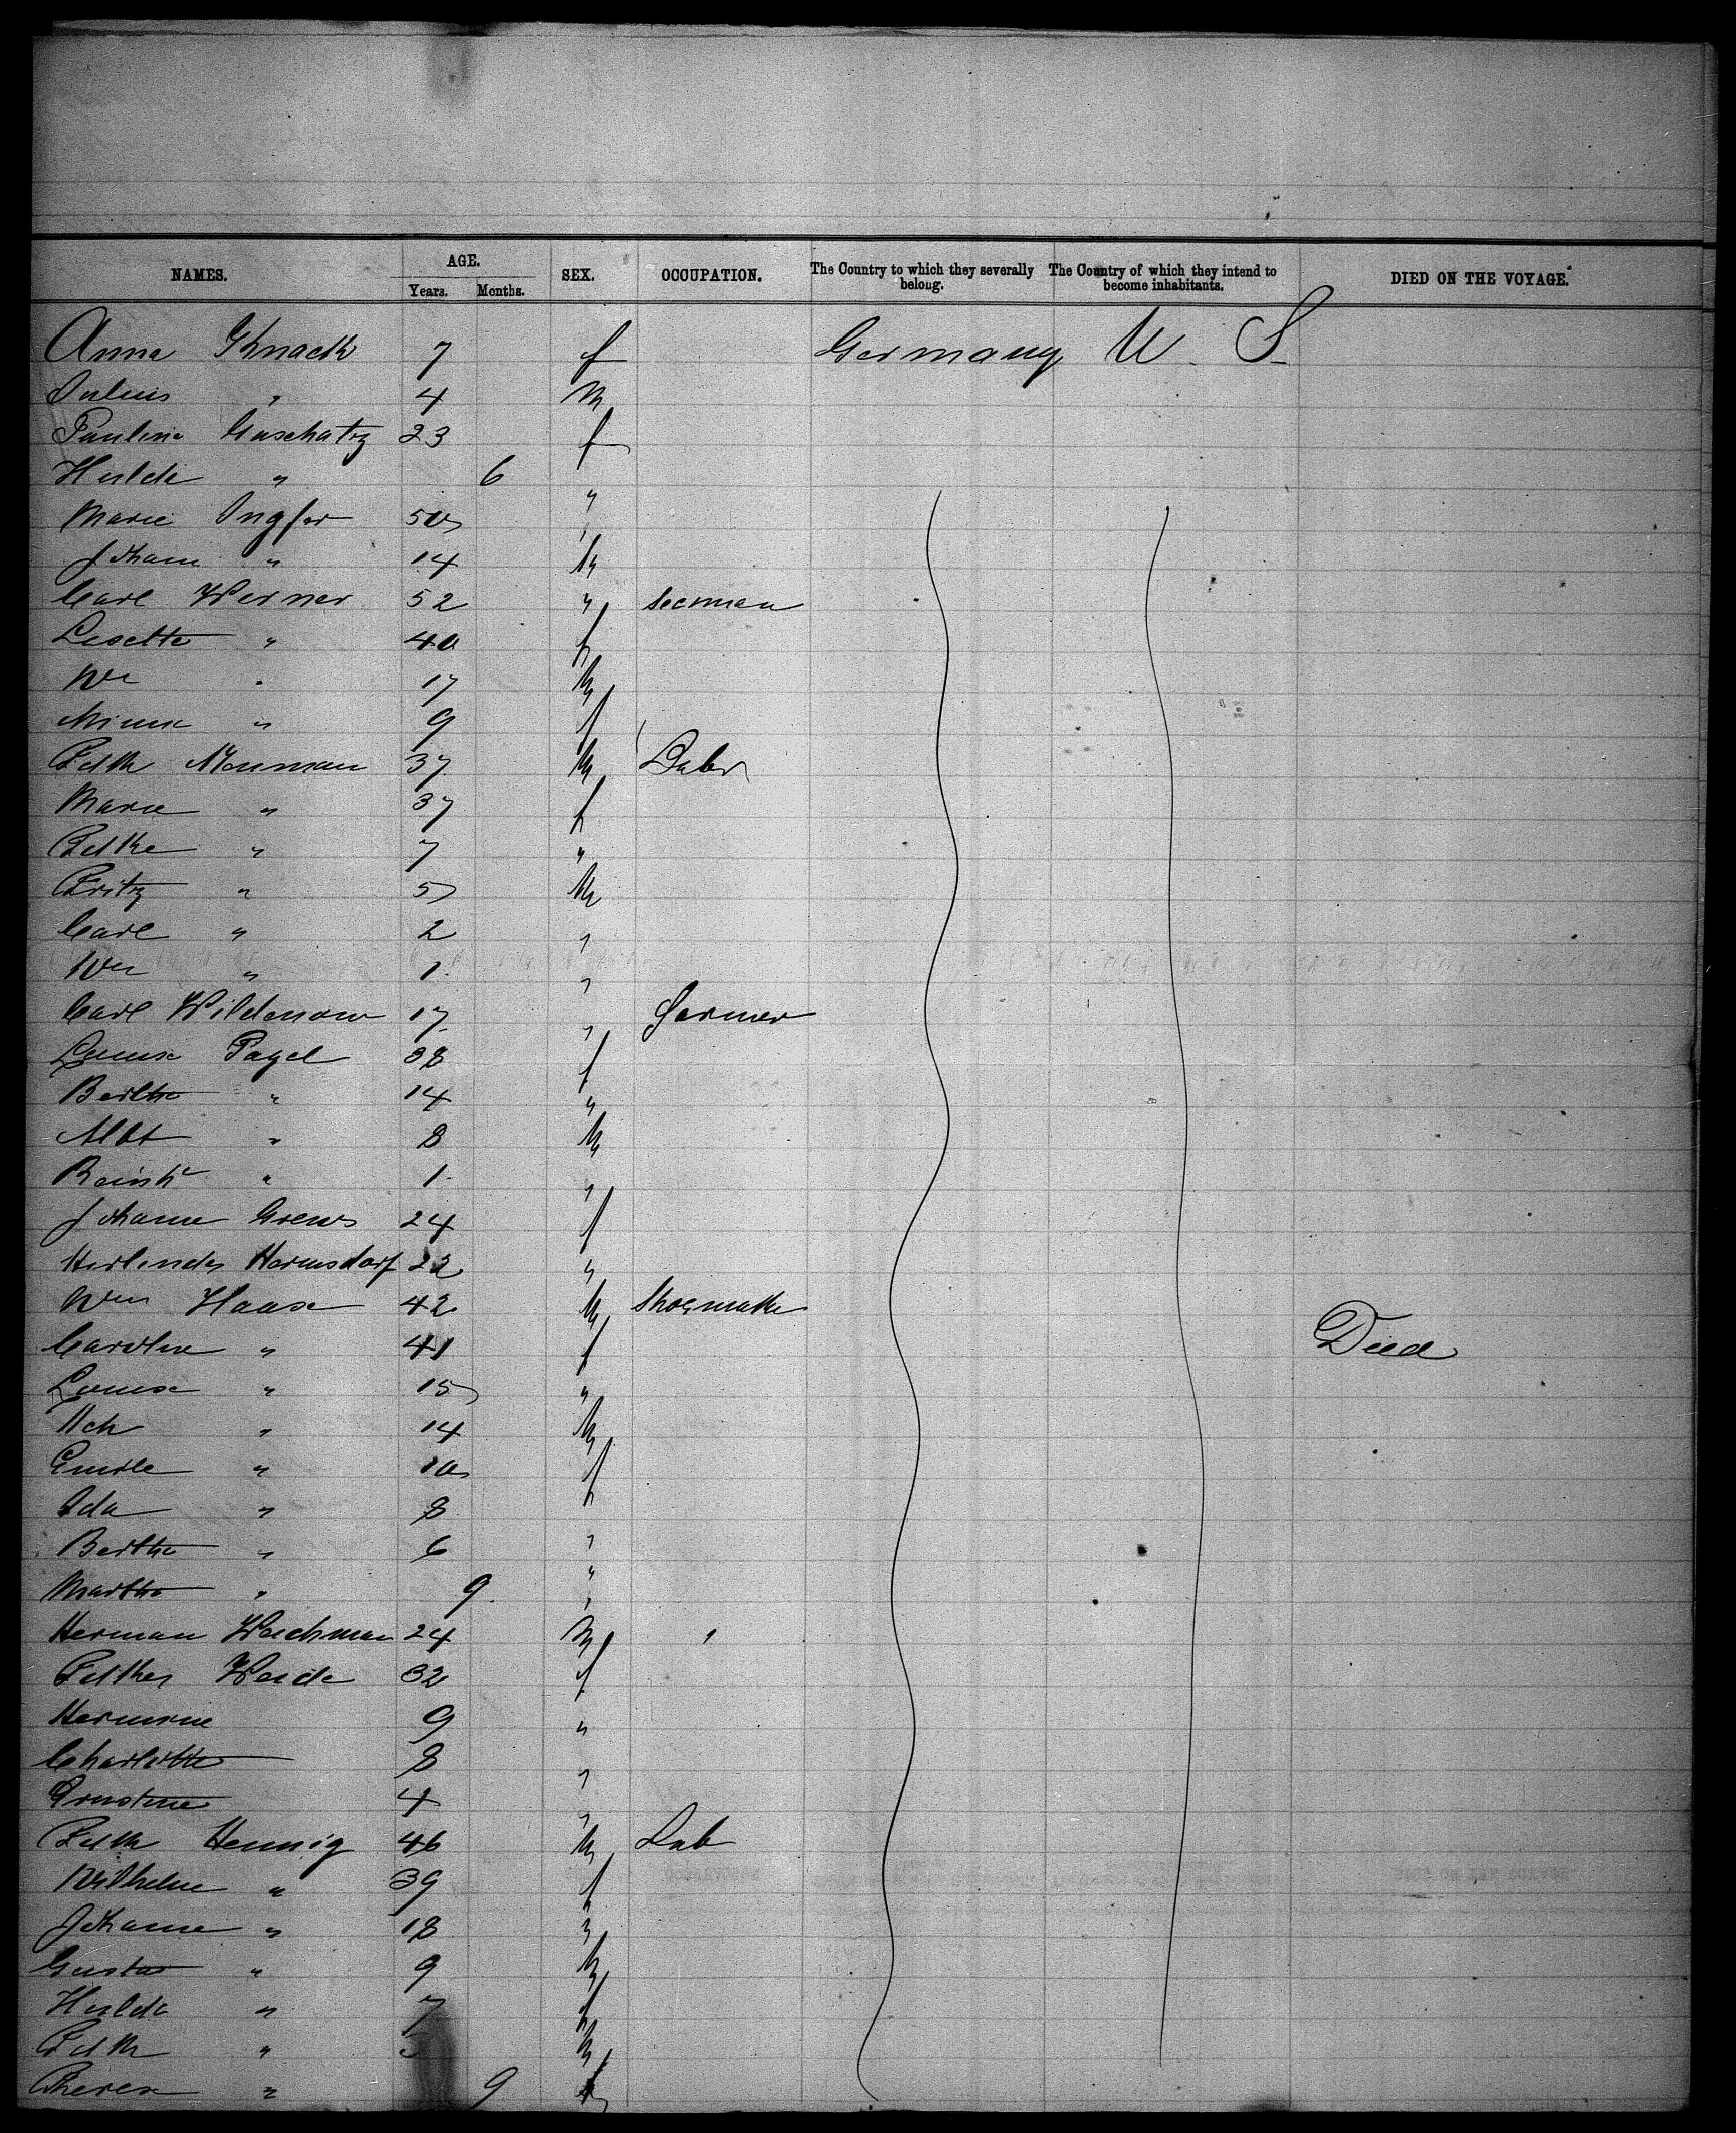 NAMES. AGE. SEX. OCCUPATION. The Country to which they severally belong. The Country of which they intend to become inhabitants. DIED ON THE VOYAGE.
Years. Months.
Anna 7 f Germany U. S
Julius " 4 M
Pauline Guschatz 23 f
Hulda " 6 "
Marie 50 "
Johann " 14 M
Carl Werner 52 "
Lisette " 40 f
Wm " 17 M
Minna " 9 f
Fdk Neumann 37 M Labr
Marie " 37 f
Fdke " 7 "
Fritz " 5 M
Carl " 2 "
Wm " 1 "
Carl Wildenow 17 " farmer
Louise Pagel 38 f
Bertha " 14 "
Albt " 8 M
Reinh " 1 "
Johanne 24 f
Hermsdorf 22 "
Wm Haase 42 M Shoemaker
Caroline " 41 f Died
Louise " 15 "
Hch " 14 M
Emilie " 10 f
Ida " 8 "
Bertha " 6 "
Martha " 9 "
Herman Weichman 24 M "
Fdke Weide 32 f
Hermine 9 "
Charlotte 8 "
Ernstine 4 "
Fdk Hennig 46 M Lab
Wilhelme " 39 f
Johanne " 18 "
Gustav " 9 M
Hulda " 7 f
Fdk " M
Therese " 9 f